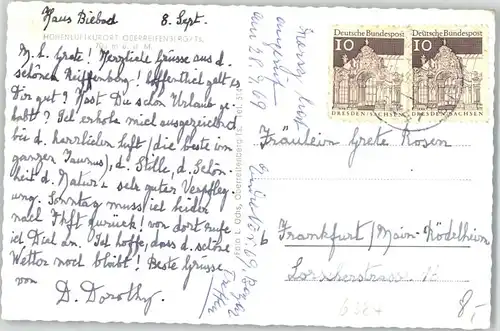 Haus Biebad 8. Sept.
HÖHENLUFTKURORT OBERREIFENBERG/Ts.
m ü. d. M.
M. l. Grete! Herzliche Grüsse aus d.
schönen Reiffenberg! Hoffentlich geht es
Dir gut? Hast Du schon Urlaub ge-
habt? Ich erhole mich ausgezeichnet
bei d. herrlichen Luft (die beste im
ganzen Taunus), d. Stille, d. Schön
heit d. Natur & sehr guter Verpfleg
ung. Sonntag muss ich leider
nach Fkft zurück! von dort rufe
ich Dich an. Ich hoffe, dass d. schöne
Wetter noch bleibt! Beste Grüsse
von
D. Dorothy.
Deutsche Bundespost
10
DRESDEN/SACHSEN
Deutsche Bundespost
10
DRESDEN/SACHSEN
Ochs, Oberreifenberg/Ts.
Treffen
Fräulein Grete Rosen
b
Frankfurt/Main-Rödelheim
8,-